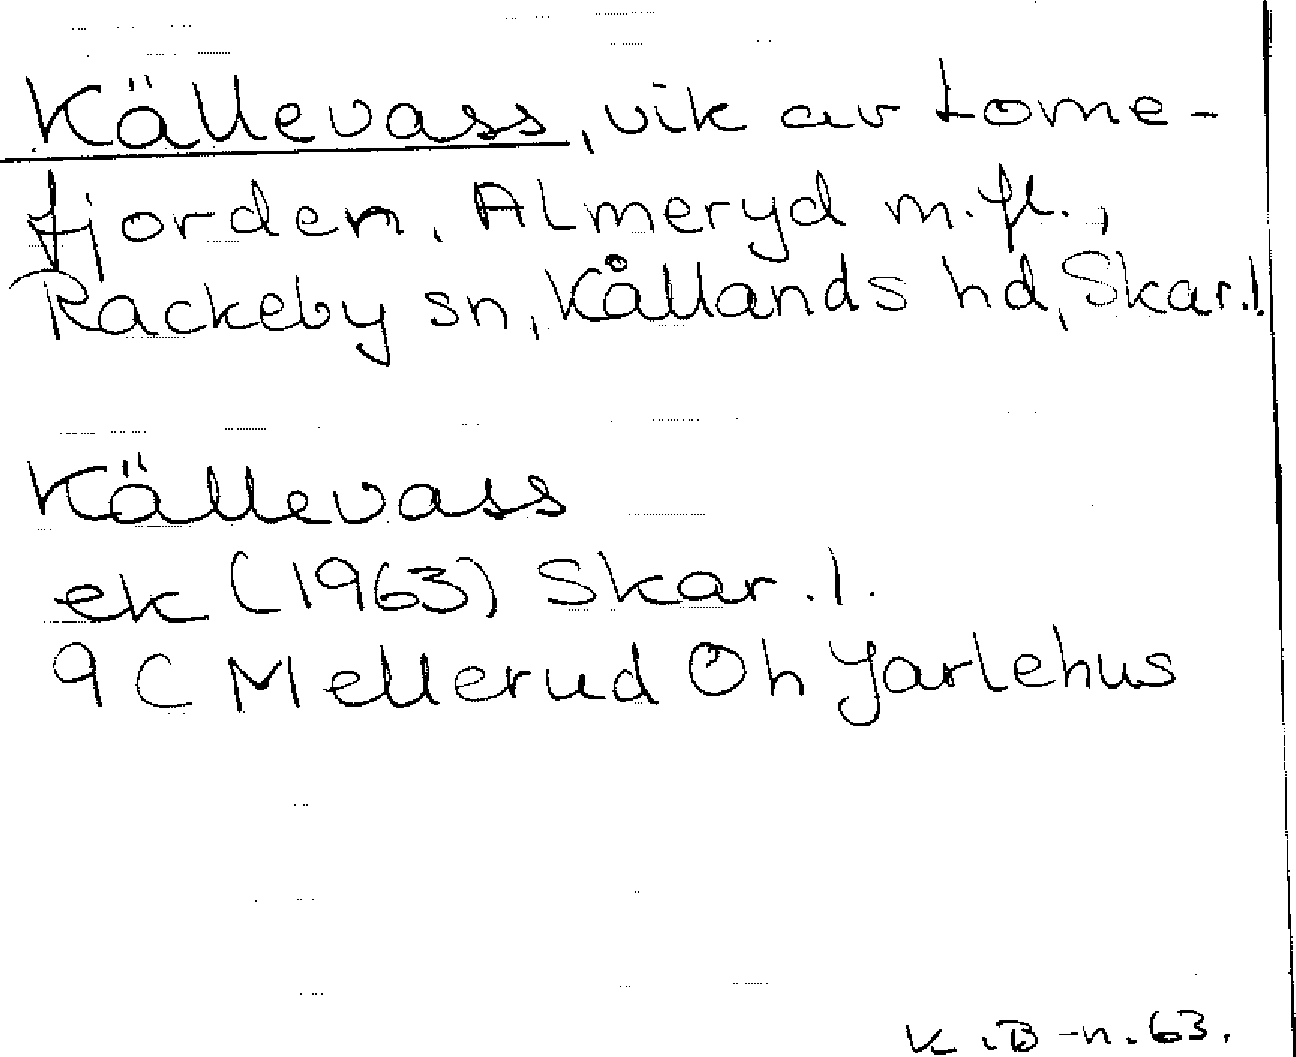 Källevass, vik av Lorne-
fjorden, Almeryd m.fl.,
Rackeby sn, Kållands hd, Skar.l.
Källevass
ek (1963) Skar.l.
9C Mellerud Öh Jarlehus
K.B-n.63.